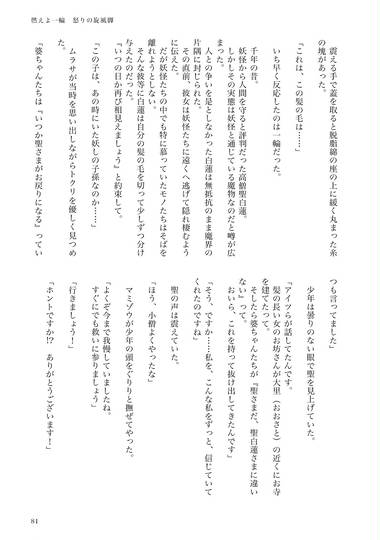 燃えよ一輪　怒りの旋風脚
震える手で蓋を取ると脱脂綿の座の上に緩く丸まった糸
の塊があった。
「これは、この髪の毛は……」
いち早く反応したのは一輪だった。
千年の昔。
妖怪から人間を守ると評判だった高僧聖白蓮。
しかしその実態は妖怪と通じている魔物なのだと噂が広
がり、
人との争いを是としなかった白蓮は無抵抗のまま魔界の
片隅に封じられた。
その直前、彼女は妖怪たちに遠くへ逃げて隠れ棲むよう
に伝えた。
だが妖怪たちの中でも特に慕っていたモノたちはそばを
離れようとしない。
そんな彼等に白蓮は自分の髪の毛を切って少しずつ分け
与えたのだった。
「いつの日か再び相見えましょう」と約束して。
「この子は、あの時にいた妖しの子孫なのか……」
ムラサが当時を思い出しながらトクリを優しく見つめ
た。
「婆ちゃんたちは『いつか聖さまがお戻りになる』ってい
つも言ってました」
少年は曇りのない眼で聖を見上げていた。
「アイツらが話してたんです。
髪の長い女のお坊さんが大里（おおさと）の近くにお寺
を建てたって。
そしたら婆ちゃんたちが『聖さまだ、聖白蓮さまに違い
ない』って。
おいら、これを持って抜け出してきたんです」
「そう、ですか……私を、こんな私をずっと、信じていて
くれたのですね」
聖の声は震えていた。
「ほう、小僧よくやったな」
マミゾウが少年の頭をぐりりと撫ぜてやる。
「よくぞ今まで我慢していましたね。
すぐにでも救いに参りましょう」
「行きましょう！」
「ホントですか!?　ありがとうございます！」
81